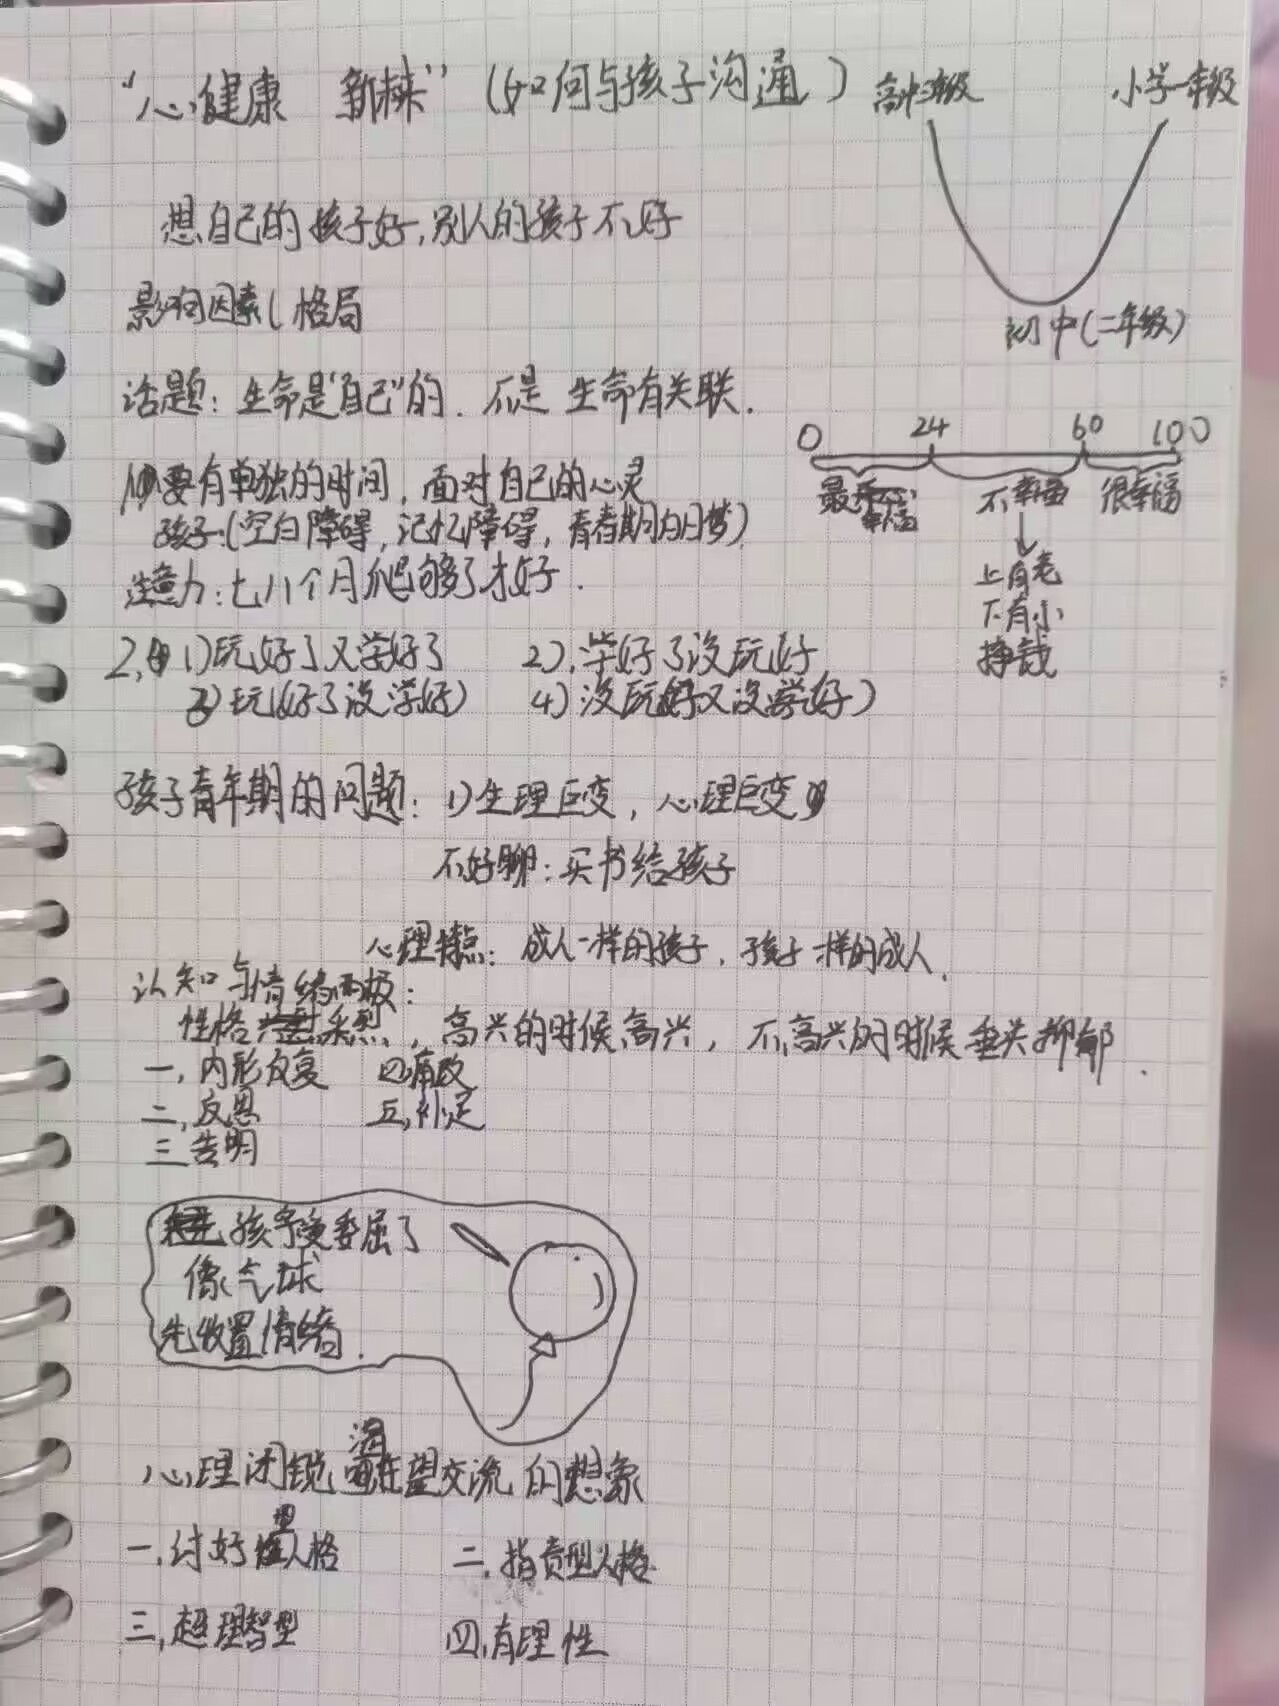 “心健康 新”（如何与孩子沟通）
高中三年级 小学一年级
初中（二年级）
想自己的孩子好，别人的孩子不好
影响因素（格局
话题：生命是“自己”的．不是 生命有关联．
0 24 60 100
最不幸福 不幸福 很幸福
上有老
下有小
挣钱
1 要有单独的时间，面对自己的心灵
孩子：（空白障碍，记忆障碍，青春期白日梦）
注意力：七八个月爬够了才好．
2、1）玩好了又学好了 2）．学好了没玩好
3）玩好了没学好） 4）没玩好又没学好）
孩子青年期的问题：1）生理巨变，心理巨变
不好聊：买书给孩子
心理特点：成人一样的孩子，孩子一样的成人．
认知与情绪两极：
性格，高兴的时候高兴，不高兴的时候垂头抑郁．
一，内形反复 四，痛改
二，反思 五，补定
三 告明
孩子受委屈了
像气球
先收置情绪．
心理闭锁 渴望交流 的想象
一，讨好型人格 二，指责型人格
三，超理智型 四，有理性